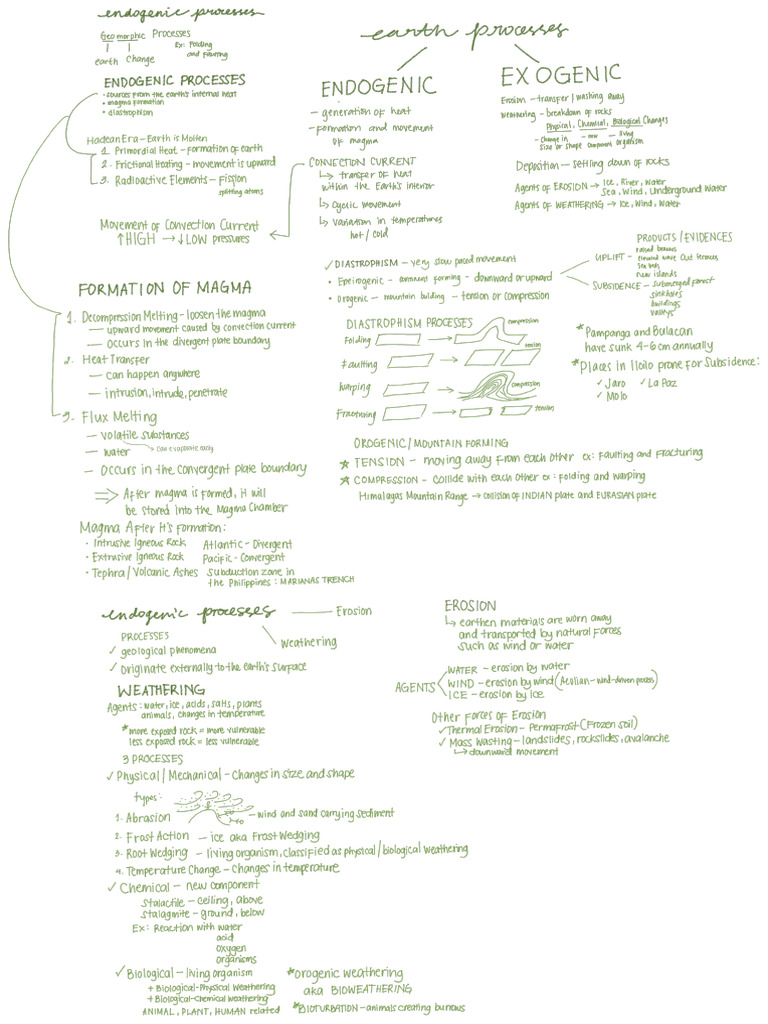 endogenic processes
Geomorphic Processes
earth change
Ex: Folding
and Faulting
ENDOGENIC PROCESSES
• sources from the earth's internal heat
• magma formation
• diastrophism
Hadean Era - Earth is Molten
1. Primordial Heat - formation of earth
2. Frictional Heating - movement is upward
3. Radioactive Elements - Fission
splitting atoms
Movement of Convection Current
↑HIGH → ↓LOW pressures
FORMATION OF MAGMA
1. Decompression Melting - loosen the magma
— upward movement caused by convection current
— occurs in the divergent plate boundary
2. Heat Transfer
— can happen anywhere
— intrusion, intrude, penetrate
3. Flux Melting
— volatile substances
can evaporate easily
— water
— occurs in the convergent plate boundary
⇒ After magma is formed, it will
be stored into the Magma Chamber
Magma After It's Formation:
• Intrusive Igneous Rock
• Extrusive Igneous Rock
• Tephra/Volcanic Ashes
Atlantic - Divergent
Pacific - Convergent
Subduction zone in
the Philippines: MARIANAS TRENCH
earth processes
ENDOGENIC
— generation of heat
— formation and movement
of magma
CONVECTION CURRENT
↳ transfer of heat
within the Earth's interior
↳ cyclic movement
↳ variation in temperatures
hot / cold
EXOGENIC
Erosion - transfer / washing away
Weathering - breakdown of rocks
Physical, Chemical, Biological Changes
- change in size or shape
- new component
- living organism
Deposition - settling down of rocks
Agents of EROSION → Ice, River, Water
Sea, Wind, Underground Water
Agents of WEATHERING → Ice, Wind, Water
✓ DIASTROPHISM - very slow paced movement
• Epeirogenic - continent forming - downward or upward
• Orogenic - mountain building - tension or compression
PRODUCTS / EVIDENCES
UPLIFT - raised beaches
elevated wave cut terraces
sea beds
new islands
SUBSIDENCE - submerged forest
sinkholes
buildings
valleys
DIASTROPHISM PROCESSES
Folding compression
Faulting tension
Warping compression
Fracturing tension
* Pampanga and Bulacan
have sunk 4-6 cm annually
* Places in Iloilo prone for subsidence:
✓ Jaro ✓ La Paz
✓ Molo
OROGENIC/MOUNTAIN FORMING
★ TENSION - moving away from each other ex: Faulting and Fracturing
★ COMPRESSION - collide with each other ex: Folding and warping
Himalayas Mountain Range → collision of INDIAN plate and EURASIAN plate
endogenic processes
Erosion
Weathering
PROCESSES
✓ geological phenomena
✓ originate externally to the earth's surface
WEATHERING
Agents: water, ice, acids, salts, plants
animals, changes in temperature
* more exposed rock = more vulnerable
less exposed rock = less vulnerable
3 PROCESSES
✓ Physical / Mechanical - Changes in size and shape
types:
1. Abrasion — wind and sand carrying sediment
2. Frost Action — ice aka Frost Wedging
3. Root Wedging - living organism, classified as physical / biological weathering
4. Temperature Change - Changes in temperature
✓ Chemical - new component
stalactile - ceiling, above
stalagmite - ground, below
Ex: Reaction with water
acid
oxygen
organisms
✓ Biological - living organism
+ Biological-Physical Weathering
+ Biological-Chemical Weathering
ANIMAL, PLANT, HUMAN related
* Orogenic weathering
aka BIOWEATHERING
* BIOTURBATION - animals creating burrows
EROSION
↳ earthen materials are worn away
and transported by natural forces
such as wind or water
AGENTS
WATER - erosion by water
WIND - erosion by wind (Aeolian - wind-driven process)
ICE - erosion by ice
Other Forces of Erosion
✓ Thermal Erosion - Permafrost (Frozen soil)
✓ Mass Wasting - landslides, rockslides, avalanche
↳ downward movement